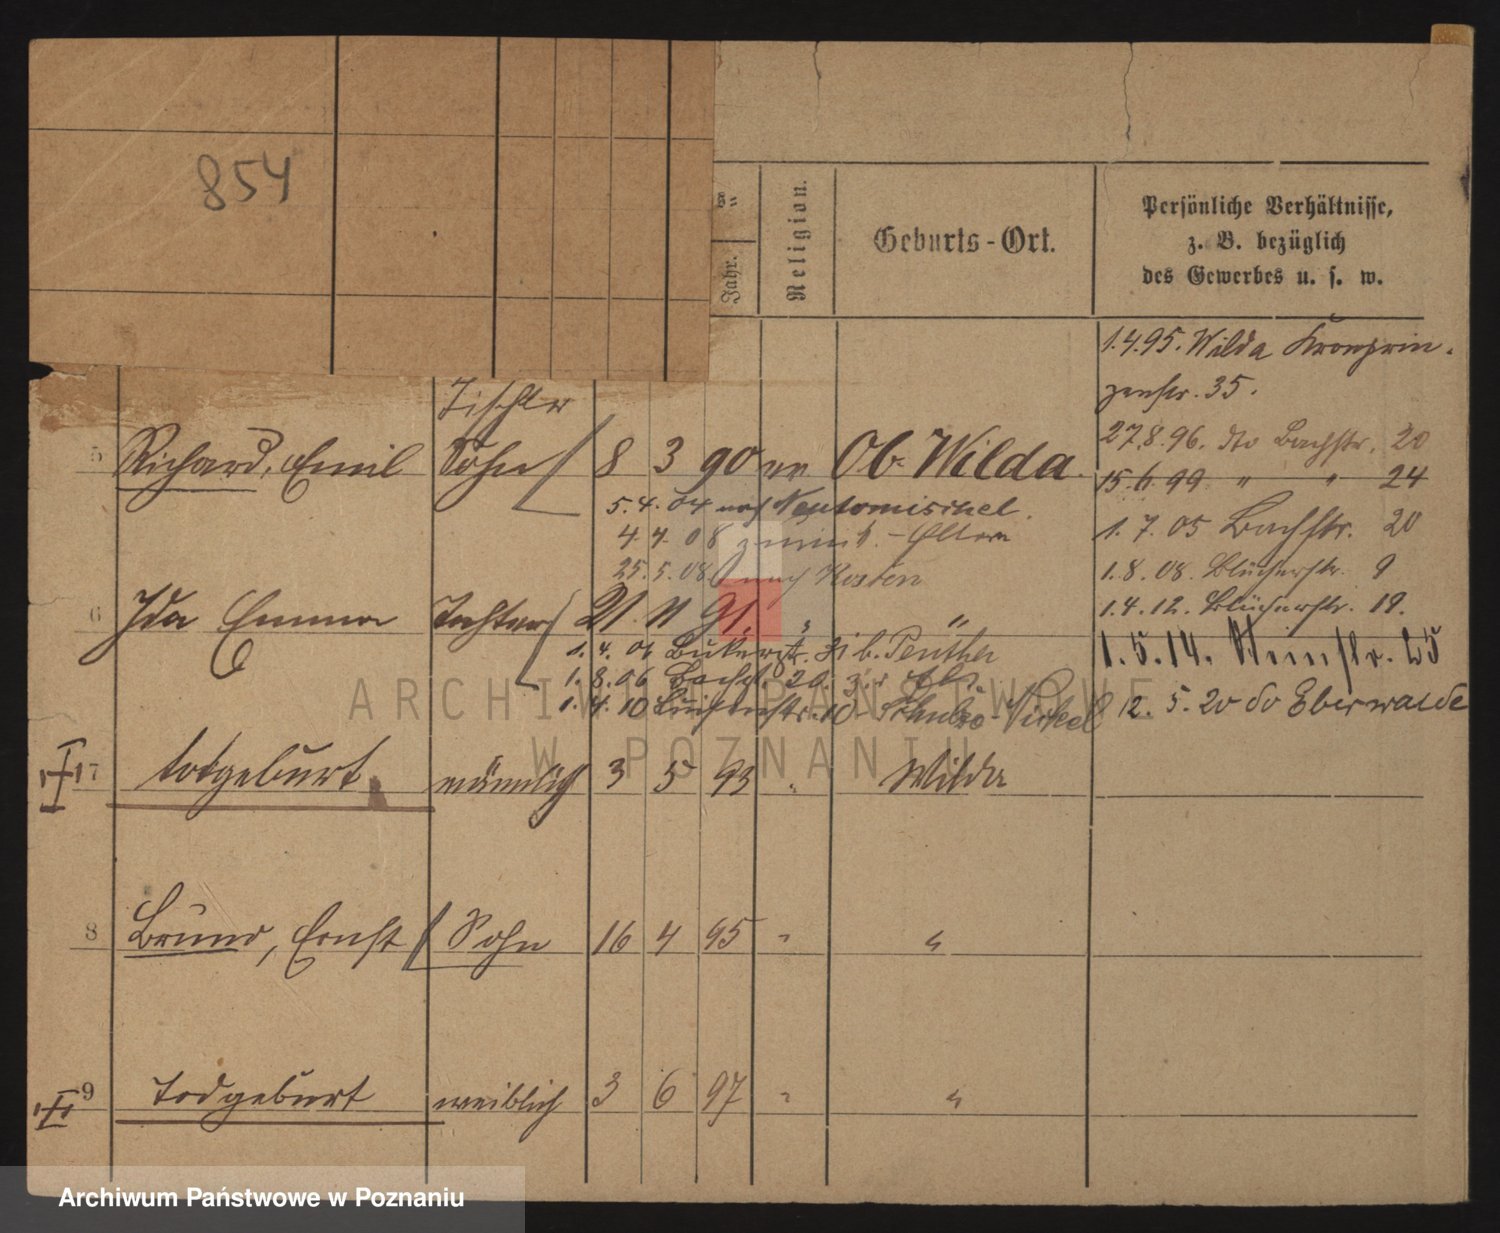 854
Jahr.
Religion.
Geburts-Ort.
Persönliche Verhältnisse,
z. B. bezüglich
des Gewerbes u. s. w.
1.4.95. Wilda Kronprin-
zenstr. 35.
27.8.96. dto Bachstr. 20
15.6.99 " " 24
1.7.05 Bachstr. 20
1.8.08. Blücherstr. 9
1.4.12. Blücherstr. 19.
1.5.14. 25
12.5.20 do Eberwalde
Tischler
5 Richard, Emil Sohn 8 3 90 Ob. Wilda
5.4.04 nach Neutomischel.
4.4.08 Eltern
25.5.08. nach Kosten
6 Ida Emma Tochter 21. 11 91. " "
1.4.06 Bukerstr. 31 b. Penther
1.8.06 Bachst. 20
1.4.10 Luisenstr. 10
7 totgeburt männlich 3 5 93 " Wilda
8 Bruno, Ernst Sohn 16 4 95 " "
9 Todgeburt weiblich 3 6 97 " "
ARCHIWUM PAŃSTWOWE
W POZNANIU
Archiwum Państwowe w Poznaniu